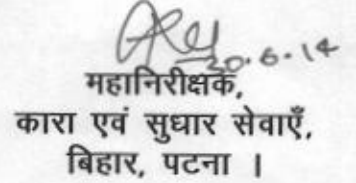 20.6.14
महानिरीक्षक,
कारा एवं सुधार सेवाएँ,
बिहार, पटना ।